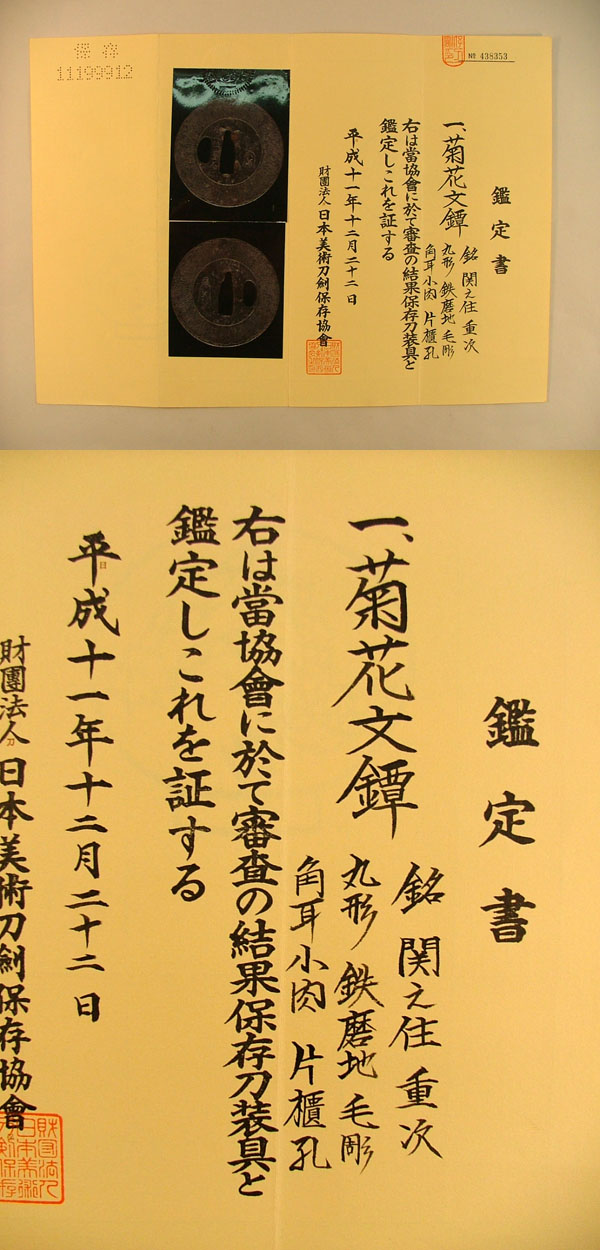 保存
11199912
№ 438353
鑑定書
一、菊花文鐔
銘 関之住 重次
丸形 鉄磨地 毛彫
角耳小肉 片櫃孔
右は當協會に於て審査の結果保存刀装具と
鑑定しこれを証する
平成十一年十二月二十二日
財團法人日本美術刀劍保存協會
鑑定書
一、菊花文鐔
銘 関之住 重次
丸形 鉄磨地 毛彫
角耳小肉 片櫃孔
右は當協會に於て審査の結果保存刀装具と
鑑定しこれを証する
平成十一年十二月二十二日
財團法人日本美術刀劍保存協會